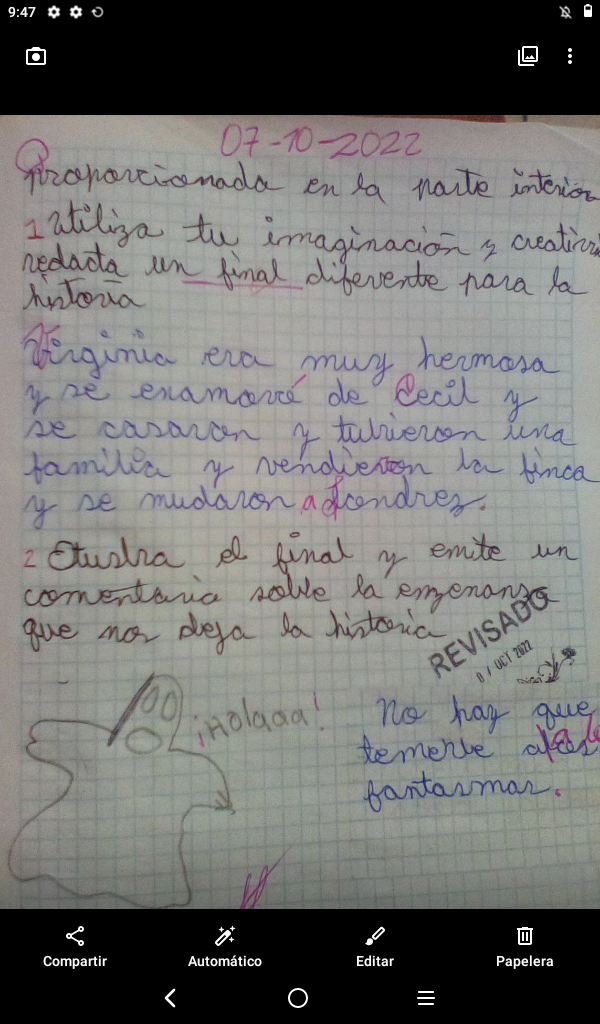 9:47
07-10-2022
Proporcionada en la parte interior
1 Utiliza tu imaginación y creativi
redacta un final diferente para la
historia
Virginia era muy hermosa
y se enamoré de Cecil y
se casaron y tubieron una
familia y vendieron la finca
y se mudaron a Londres.
2 el final y emite un
comentaria la enzenanza
que nos deja la historia
REVISADO
07 OCT 2022
¡Holaaa!
No hay que
temerle
fantasmas.
Compartir
Automático
Editar
Papelera